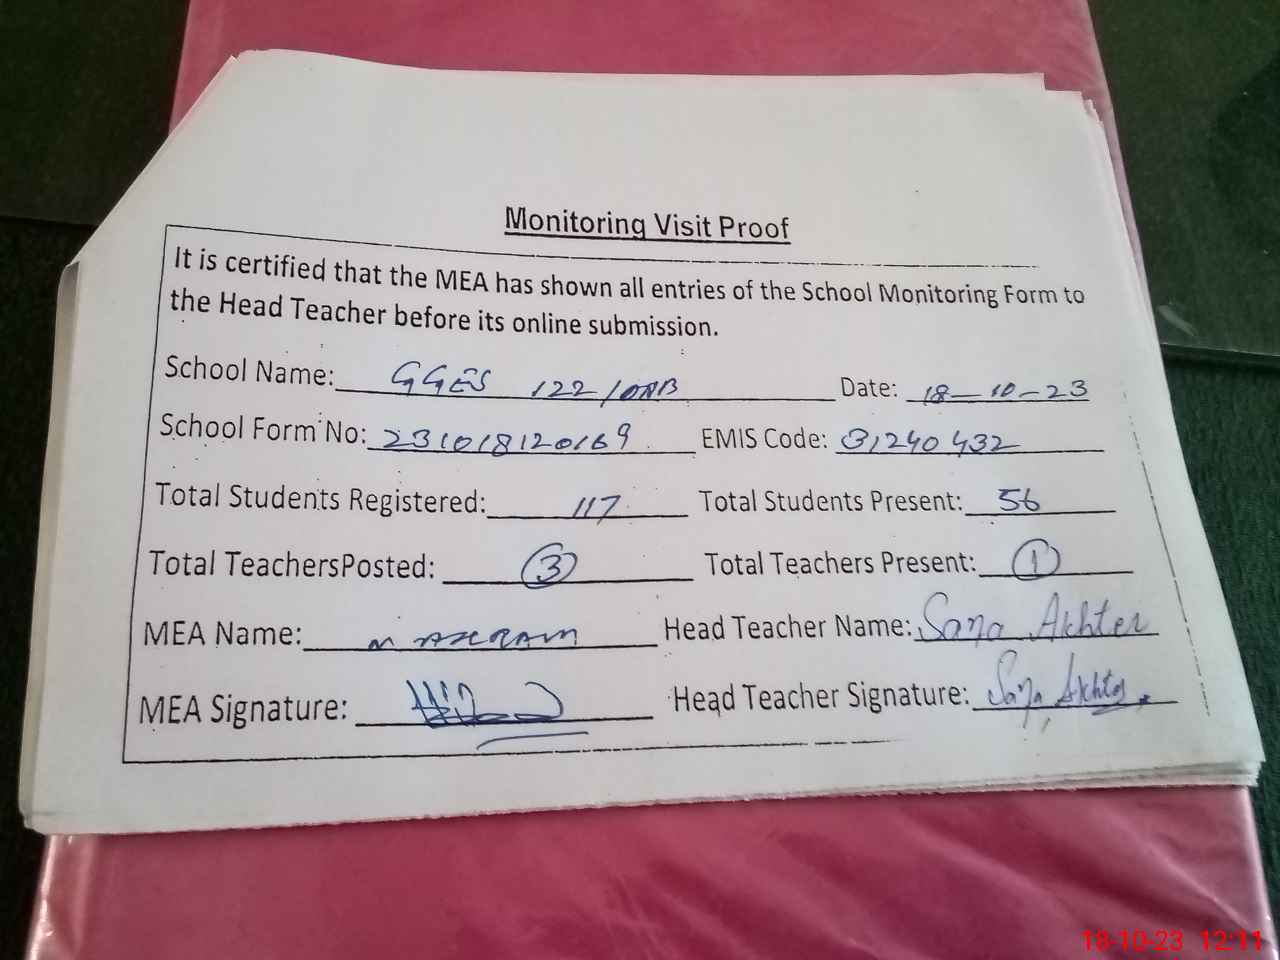 Monitoring Visit Proof
It is certified that the MEA has shown all entries of the School Monitoring Form to
the Head Teacher before its online submission.
School Name: GGES 122/ Date: 18-10-23
School Form No: 231018120169 EMIS Code: 31240432
Total Students Registered: 117 Total Students Present: 56
Total TeachersPosted: 3 Total Teachers Present: 1
MEA Name: M Head Teacher Name: Sana Akhter
MEA Signature: Head Teacher Signature: Sana Akhter
18-10-23 12:11